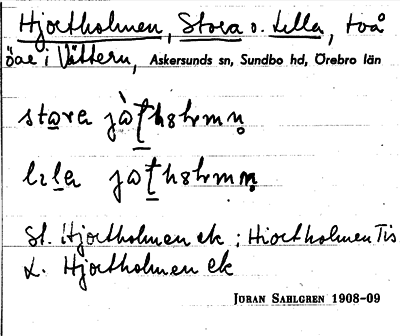 Hjortholmen, Stora o. Lilla, två
öar i Vättern, Askersunds sn, Sundbo hd, Örebro län
stora
lila
St. Hjortholmen ek ; Hiortholmen Tis
L. Hjortholmen ek
JÖRAN SAHLGREN 1908-09